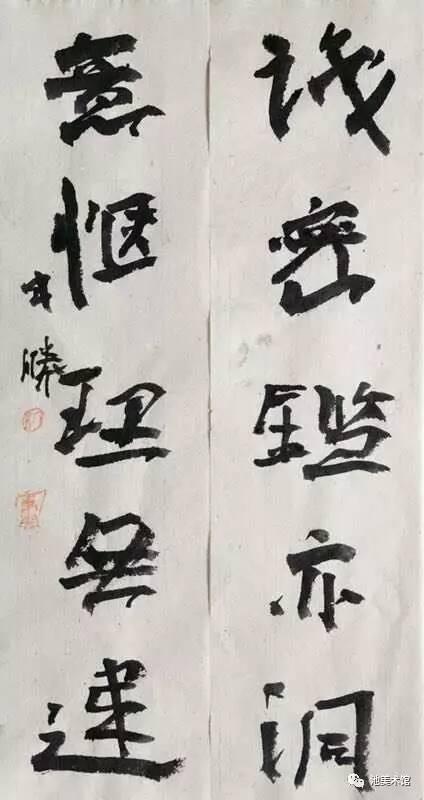 識密鑑亦洞
意愜理無違
勝
池美术馆